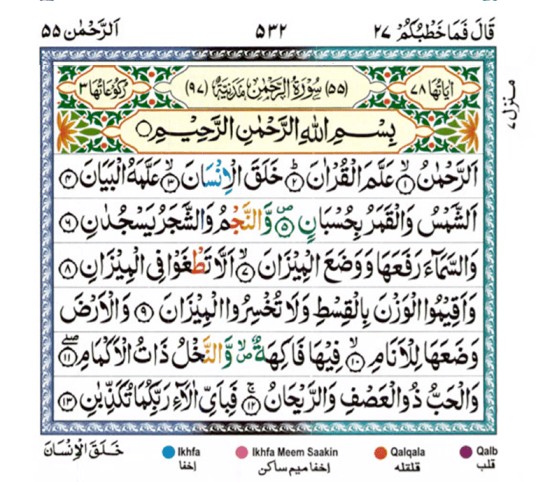 قَالَ فَمَا خَطْبُكُمْ ٢٧ ٥٣٢ اَلرَّحْمٰن ٥٥
منزل ٧
اٰيَاتُهَا ٧٨ (٥٥) سُوْرَةُ الرَّحْمٰنِ مَدَنِيَّةٌ (٩٧) رُكُوْعَاتُهَا ٣
بِسْمِ اللّٰهِ الرَّحْمٰنِ الرَّحِيْمِ
اَلرَّحْمٰنُ ۙ‏﴿١﴾ عَلَّمَ الْقُرْاٰنَ ؕ‏﴿٢﴾ خَلَقَ الْاِنْسَانَ ۙ‏﴿٣﴾ عَلَّمَهُ الْبَيَانَ ﴿٤﴾
اَلشَّمْسُ وَالْقَمَرُ بِحُسْبَانٍ ﴿٥﴾ۖ وَّالنَّجْمُ وَالشَّجَرُ يَسْجُدٰنِ ﴿٦﴾
وَالسَّمَآءَ رَفَعَهَا وَوَضَعَ الْمِيْزَانَ ۙ‏﴿٧﴾ اَلَّا تَطْغَوْا فِى الْمِيْزَانِ ﴿٨﴾
وَاَقِيْمُوا الْوَزْنَ بِالْقِسْطِ وَلَا تُخْسِرُوا الْمِيْزَانَ ﴿٩﴾ وَالْاَرْضَ
وَضَعَهَا لِلْاَنَامِ ۙ‏﴿١٠﴾ فِيْهَا فَاكِهَةٌ ۙۖ وَّالنَّخْلُ ذَاتُ الْاَكْمَامِ ﴿١١﴾ۖ
وَالْحَبُّ ذُو الْعَصْفِ وَالرَّيْحَانُ ۚ‏﴿١٢﴾ فَبِاَىِّ اٰلَآءِ رَبِّكُمَا تُكَذِّبٰنِ ﴿١٣﴾
خَلَقَ الْاِنْسَانَ Ikhfa Ikhfa Meem Saakin Qalqala Qalb
اخفا اخفا میم ساکن قلقله قلب